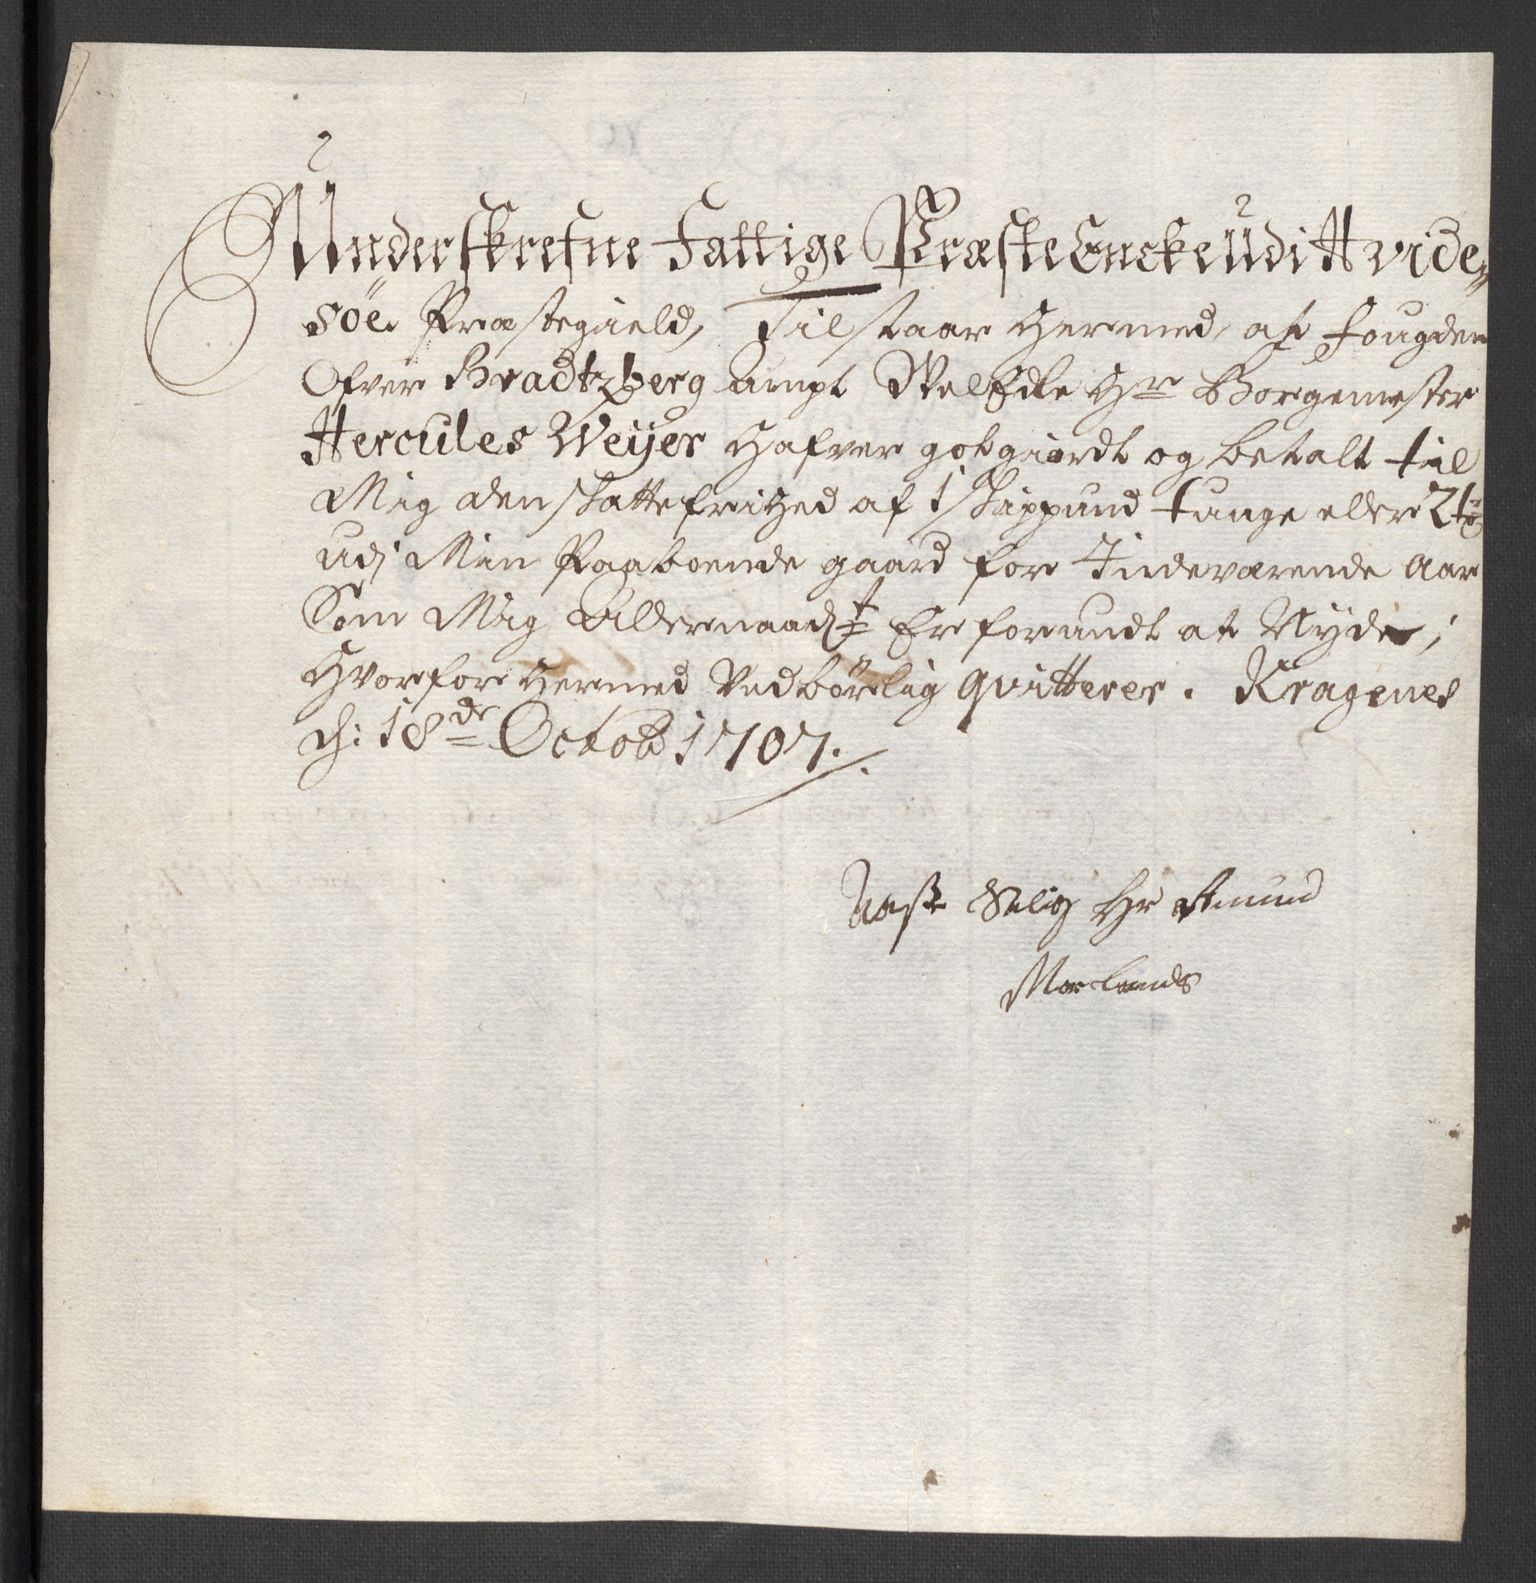 Underskrefne Fattige Præste Encke Udi Hvide-
söe Præstegield, Tilstaar hermed, at fougden
Ofver Bradtzberg ampt WelEdle Hr Borgemester
Hercules Weÿer hafver gotgiordt og betalt til
Mig den skatte frihed af 1 skippund tunge eller 2 tr
udj Min Paaboende gaard for Indeværende Aar
Som Mig Allernaadt Er forundt at Nyde,
hvorfor hermed Vedbörlig qvitterer. Kragenes
d: 18de Octob 1707.
Aaste Selig Hr Amund
Morlands